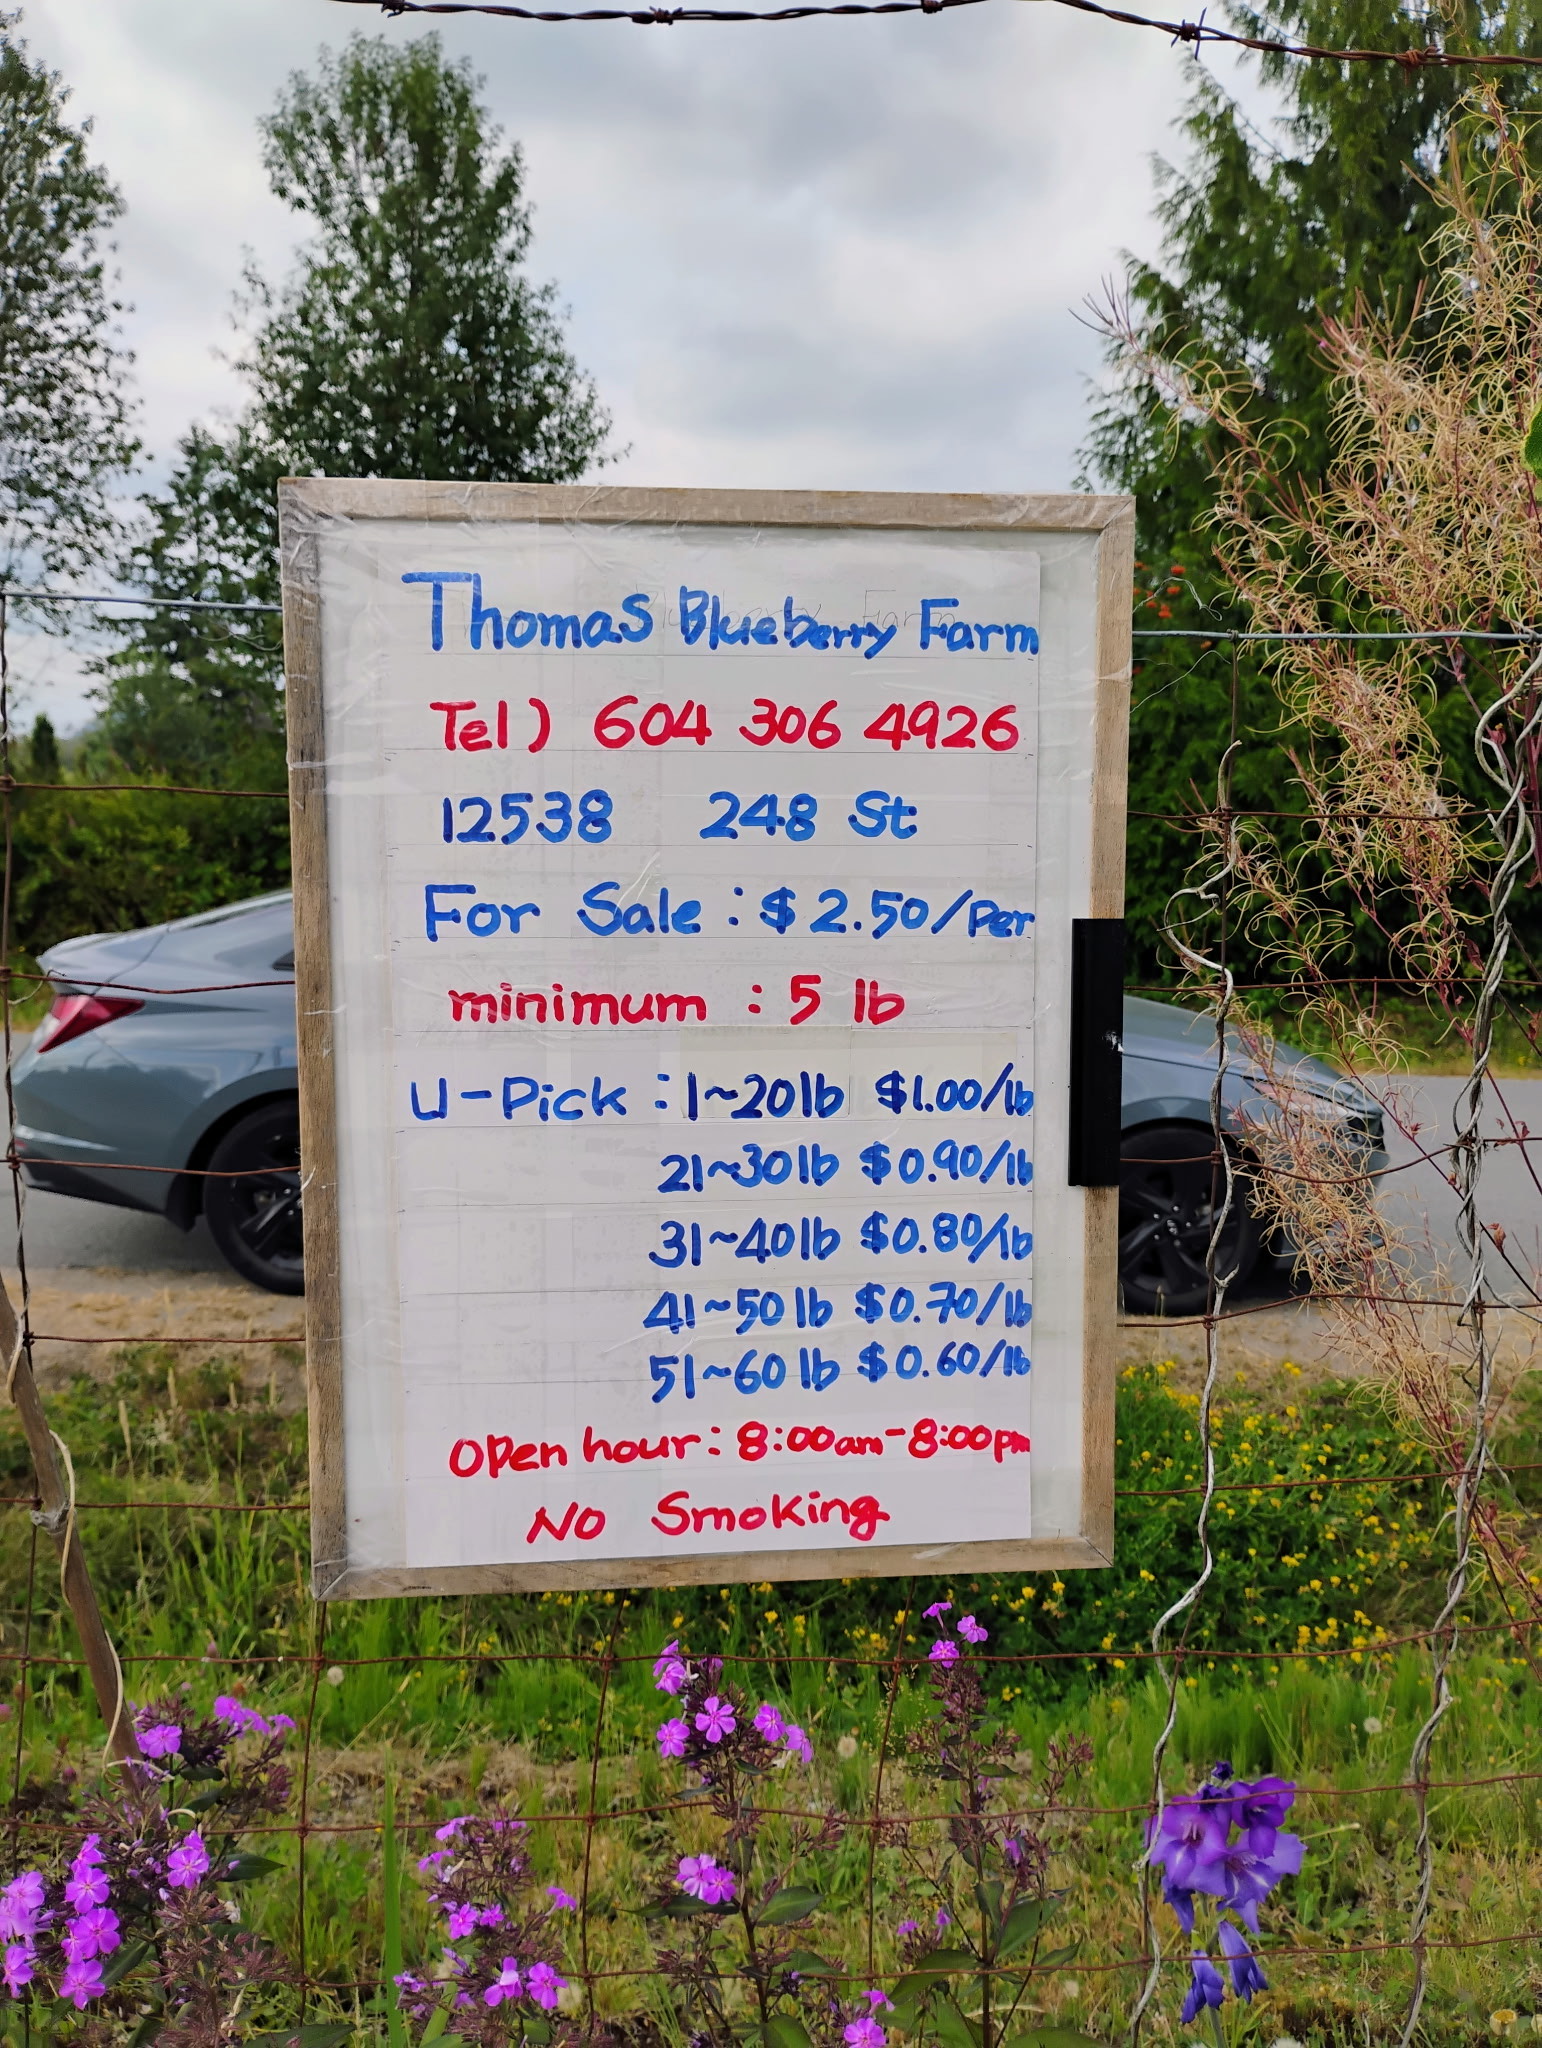 Thomas Blueberry Farm
Tel) 604 306 4926
12538 248 St
For Sale : $2.50/Per
minimum : 5 lb
U-Pick : 1~20lb $1.00/lb
21~30lb $0.90/lb
31~40lb $0.80/lb
41~50lb $0.70/lb
51~60lb $0.60/lb
Open hour: 8:00am-8:00pm
No Smoking